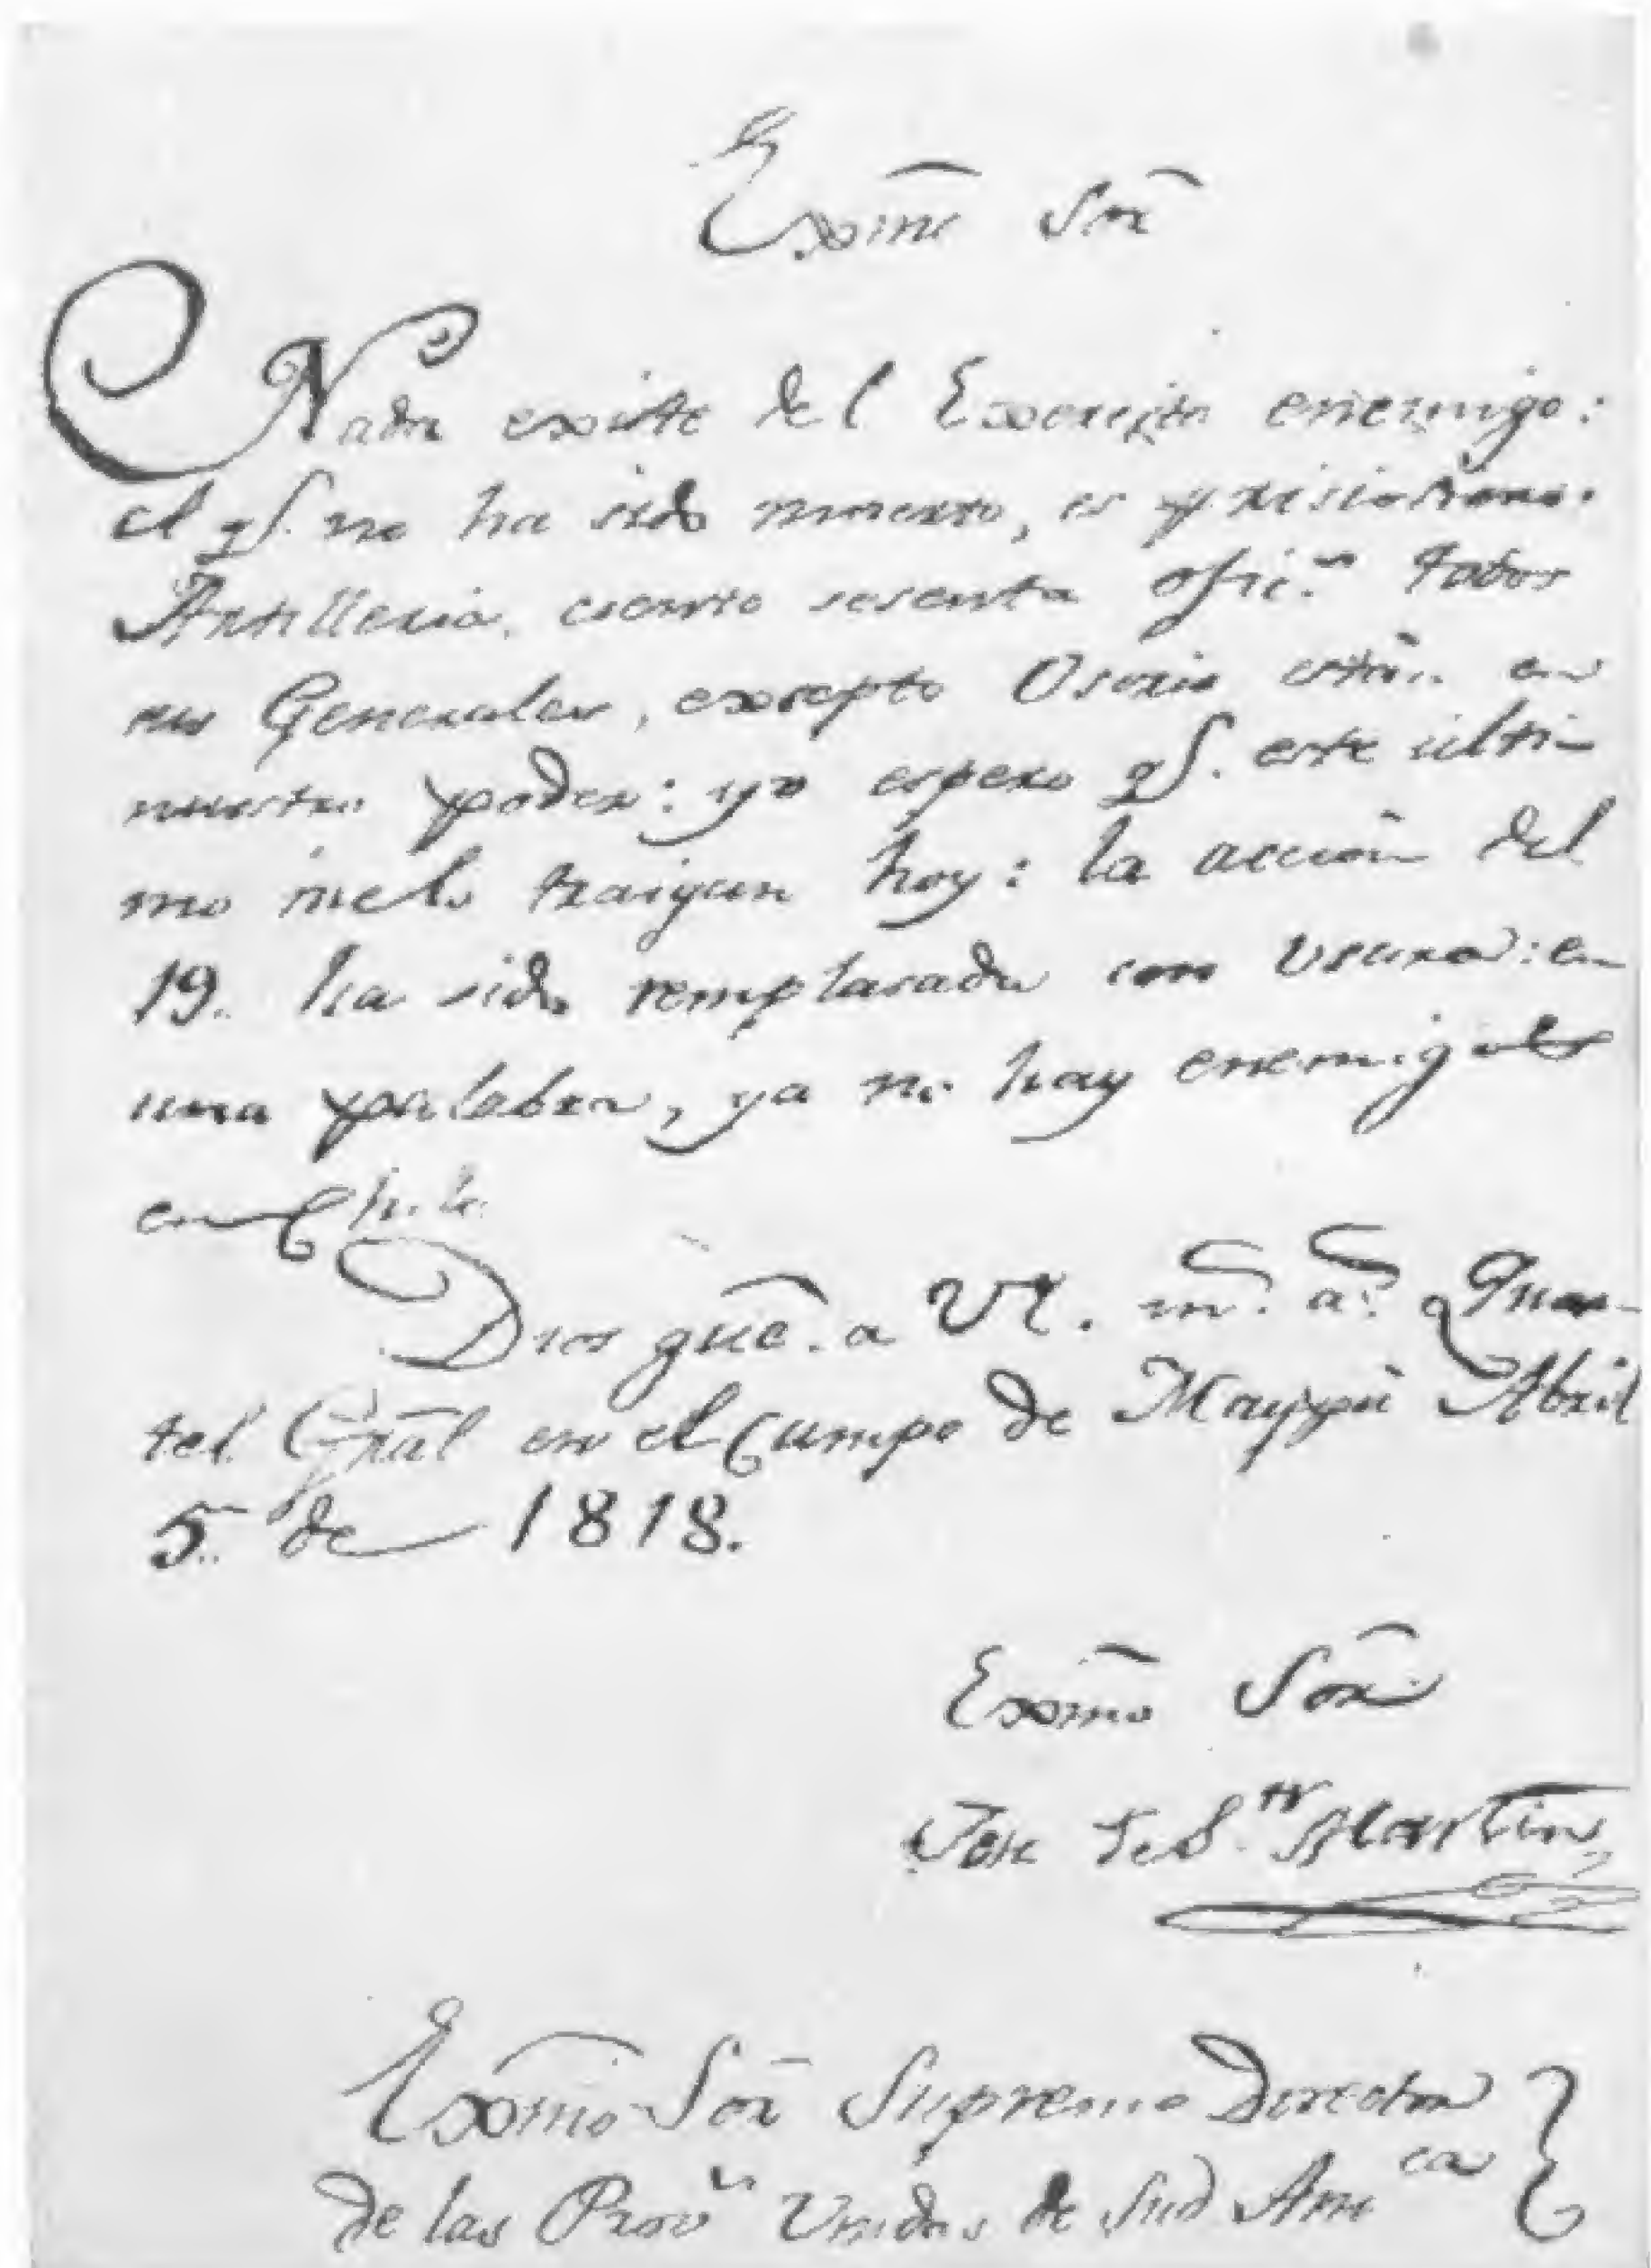 Exmõ Sor̃
Nada existe del Exercito enemigo:
el qe. no ha sido muerto, es prisionero.
Artilleria, ciento sesenta ofics. todos
sus Generales, excepto Osorio están en
nuestro poder: yo espero qe. este ulti-
mo me lo traigan hoy: la acción del
19. ha sido remplasada con usura: en
una palabra, ya no hay enemigos
en Chile
Dios gũe. a VE. ms. as. Quar-
tel Gr̃al en el Campo de Maypú Abril
5.. de 1818.
Exmõ Sor̃
Jose de Sn Martin
Exmõ Sor̃ Supremo Director
de las Provs Unidas de Sud Amca